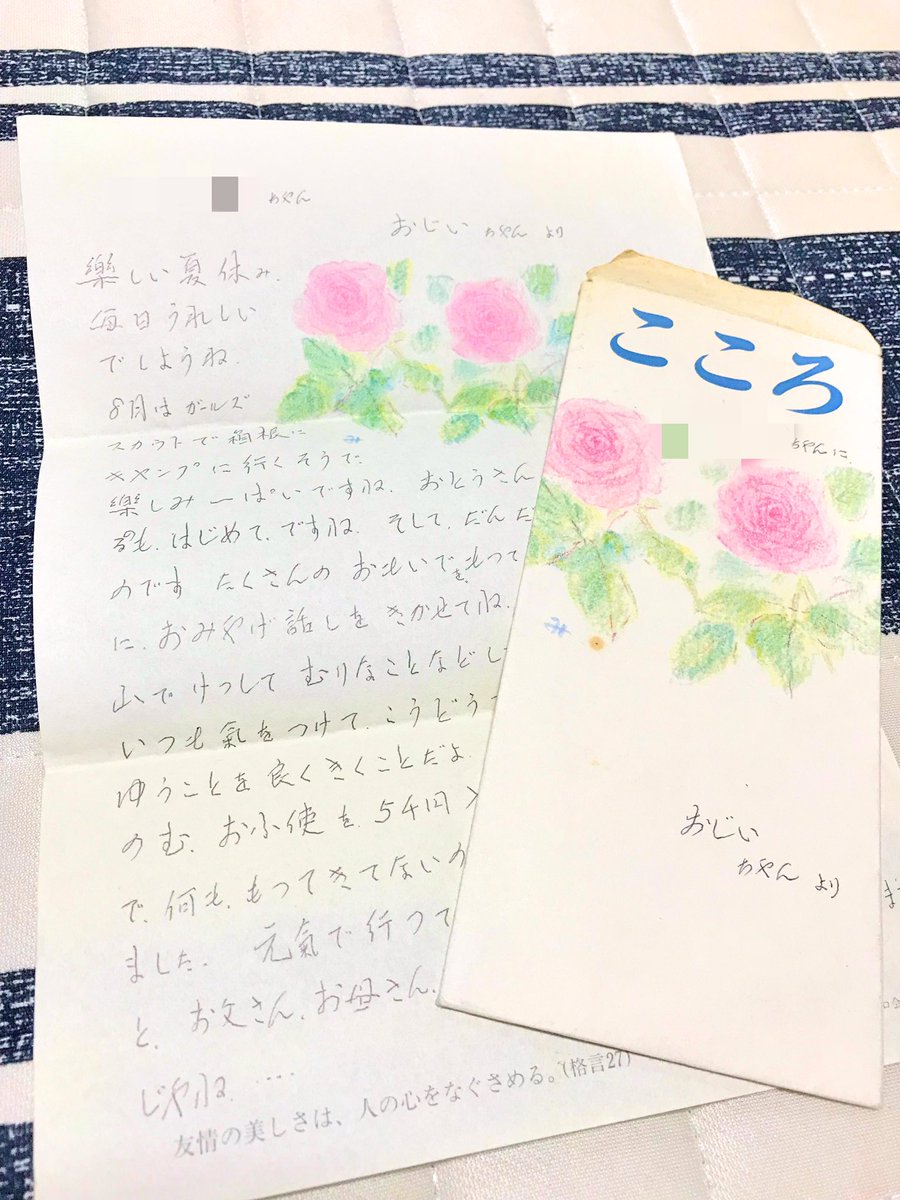 ちゃん
おじいちゃんより
樂しい夏休み、
毎日うれしい
でしようね、
8月はガールズ
スカウトで箱根に
キャンプに行くそうで、
樂しみ一ぱいですね、おとうさん
も、はじめて、ですね、そして、だんだ
のです たくさんの おもいでをもって
に、おみやげ話しをきかせてね、
山でけつして むりなことなどし
いつも氣をつけて、こうどう
ゆうことを良くきくことだよ、
のむ、おふ使を、5千円
で、何も、もつてきてないの
ました、元氣で行つて
と、お父さん、お母さん、
じやね、‥‥
友情の美しさは、人の心をなぐさめる。(格言27)
こころ
ちゃんに、
おじい
ちゃんより